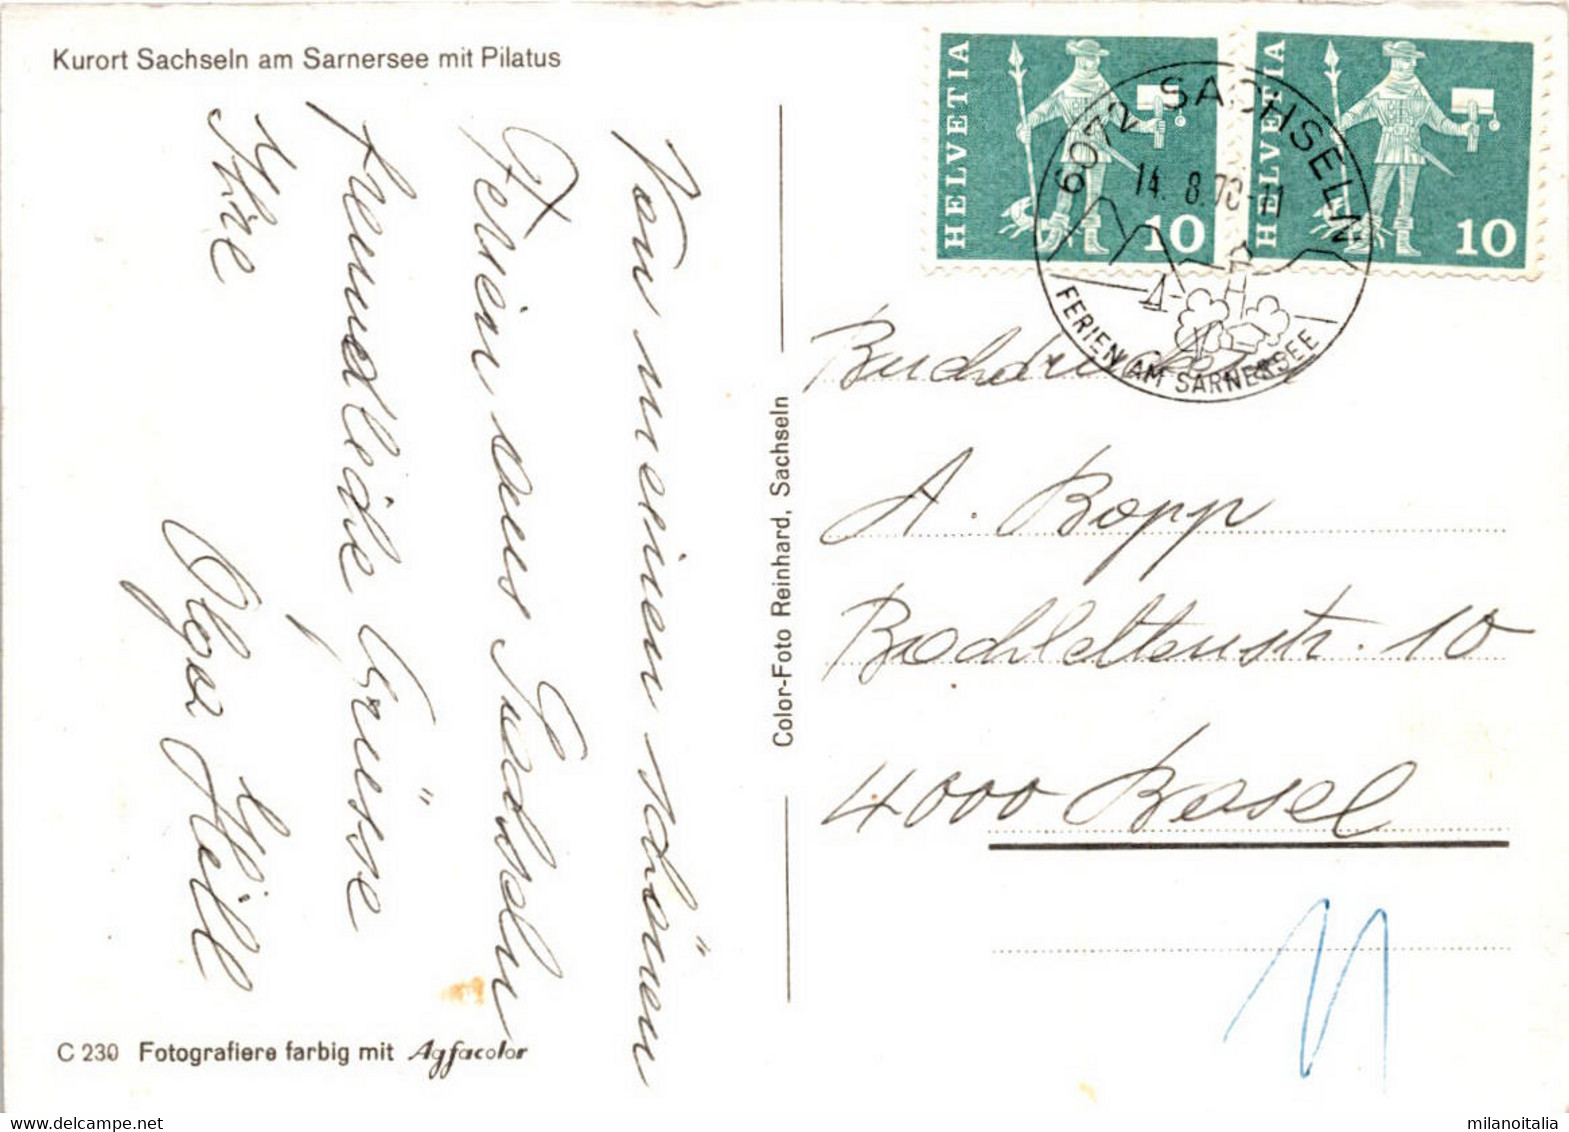 Kurort Sachseln am Sarnersee mit Pilatus
Von meinen schönen
Ferien aus Sachseln
freundliche Grüsse
Ihre
Olga Hell
C 230 Fotografiere farbig mit Agfacolor
Color-Foto Reinhard, Sachseln
HELVETIA
10
HELVETIA
10
6072 SACHSELN
14. 8. 70-11
FERIEN AM SARNERSEE
A. Bopp
Bachlettenstr. 10
4000 Basel
11
milanoitalia